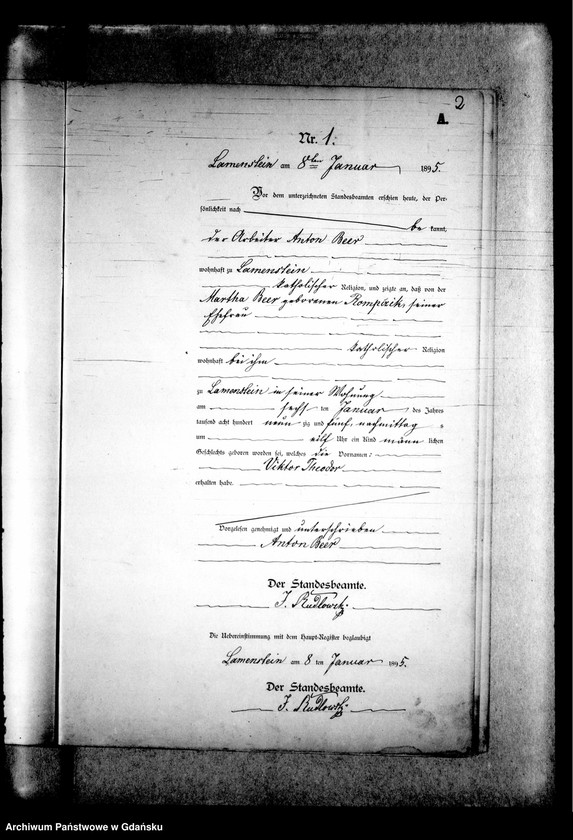 2
A.
Nr. 1.
Lamenstein am 8ten Januar 1895.
Vor dem unterzeichneten Standesbeamten erschien heute, der Per-
sönlichkeit nach
be kannt,
der Arbeiter Anton Beer
wohnhaft zu Lamenstein
katholischer Religion, und zeigte an, daß von der
Martha Beer geborenen seiner
Ehefrau
katholischer Religion
wohnhaft bei ihm
zu Lamenstein in seiner Wohnung
am sechs ten Januar des Jahres
tausend acht hundert neun zig und fünf, nachmittag s
um eilf Uhr ein Kind männ lichen
Geschlechts geboren worden sei, welches die Vornamen:
Viktor Theodor
erhalten habe.
Vorgelesen genehmigt und unterschrieben
Anton Beer
Der Standesbeamte.
J.
Die Uebereinstimmung mit dem Haupt-Register beglaubigt
Lamenstein am 8 ten Januar 1895.
Der Standesbeamte.
J.
Archiwum Państwowe w Gdańsku